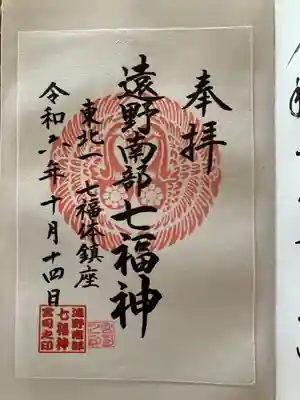 奉拝
遠野南部七福神
東北一 七福体鎮座
令和六年十月十四日
遠野南部
七福神
宮司之印